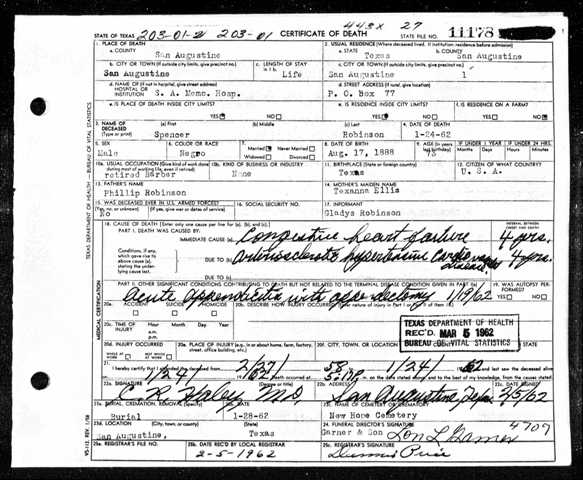 443x 27
STATE OF TEXAS 203-01-2 203-01 CERTIFICATE OF DEATH STATE FILE NO. 11178
1. PLACE OF DEATH 2. USUAL RESIDENCE (Where deceased lived. If institution: residence before admission)
a. COUNTY San Augustine a. STATE Texas b. COUNTY San Augustine
b. CITY OR TOWN (If outside city limits, give precinct no.) c. LENGTH OF STAY in 1b c. CITY OR TOWN (If outside city limits, give precinct no.)
San Augustine Life San Augustine 1
d. NAME OF (If not in hospital, give street address) HOSPITAL OR INSTITUTION S. A. Memo. Hosp. d. STREET ADDRESS (If rural, give location) P. O. Box 77
e. IS PLACE OF DEATH INSIDE CITY LIMITS? YES NO e. IS RESIDENCE INSIDE CITY LIMITS? YES NO f. IS RESIDENCE ON A FARM? YES NO
3. NAME OF DECEASED (Type or print) (a) First (b) Middle (c) Last 4. DATE OF DEATH
Spencer Robinson 1-24-62
5. SEX 6. COLOR OR RACE 7. Married Never Married Widowed Divorced 8. DATE OF BIRTH 9. AGE IF UNDER 1 YEAR IF UNDER 24 HRS.
Male Negro Aug. 17, 1888 73 Months Days Hours Min.
10a. USUAL OCCUPATION (Give kind of work done) 10b. KIND OF BUSINESS OR INDUSTRY 11. BIRTHPLACE (State or foreign country) 12. CITIZEN OF WHAT COUNTRY?
retired Barber None Texas U. S. A.
13. FATHER'S NAME 14. MOTHER'S MAIDEN NAME
Phillip Robinson Texanna Ellis
15. WAS DECEASED EVER IN U.S. ARMED FORCES? 16. SOCIAL SECURITY NO. 17. INFORMANT
(Yes, no, or unknown) (If yes, give war or dates of service)
No Gladys Robinson
18. CAUSE OF DEATH [Enter only one cause per line for (a), (b), and (c).] INTERVAL BETWEEN ONSET AND DEATH
PART I. DEATH WAS CAUSED BY:
IMMEDIATE CAUSE (a) Congestive heart failure 4 yrs.
Conditions, if any, which gave rise to above cause (a), stating the underlying cause last. DUE TO (b) Arteriosclerotic hypertensive cardiovascular disease 4 yrs.
DUE TO (c)
PART II. OTHER SIGNIFICANT CONDITIONS CONTRIBUTING TO DEATH BUT NOT RELATED TO THE TERMINAL DISEASE CONDITION GIVEN IN PART I(a) 19. WAS AUTOPSY PERFORMED? YES NO
Acute appendicitis with appendectomy 1/19/62
20a. ACCIDENT SUICIDE HOMICIDE 20b. DESCRIBE HOW INJURY OCCURRED
20c. TIME OF INJURY Hour Month Day Year a.m. p.m.
TEXAS DEPARTMENT OF HEALTH
REC'D MAR 5 1962
BUREAU OF VITAL STATISTICS
20d. INJURY OCCURRED WHILE AT WORK NOT WHILE AT WORK 20e. PLACE OF INJURY (e.g., in or about home, farm, factory, street, office building, etc.) 20f. CITY, TOWN, OR LOCATION COUNTY STATE
21. I hereby certify that I attended the deceased from 1/24/62
22a. SIGNATURE (Degree or title) 22b. ADDRESS 22c. DATE SIGNED
M.D. San Augustine, Texas 2/5/62
23a. BURIAL, CREMATION, REMOVAL (Specify) 23b. DATE 23c. NAME OF CEMETERY OR CREMATORY
Burial 1-28-62 New Hope Cemetery
23d. LOCATION (City, town, or county) (State) 24. FUNERAL DIRECTOR'S SIGNATURE
San Augustine, Texas Garner & Son Lon L Garner 4707
25a. REGISTRAR'S FILE NO. 25b. DATE REC'D BY LOCAL REGISTRAR 25c. REGISTRAR'S SIGNATURE
2-5-1962
TEXAS DEPARTMENT OF HEALTH — BUREAU OF VITAL STATISTICS
MEDICAL CERTIFICATION
VS-112 REV. 1/58